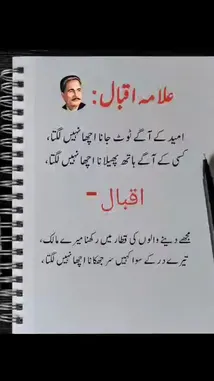 علامہ اقبال :
امید کے آگے ٹوٹ جانا اچھا نہیں لگتا،
کسی کے آگے ہاتھ پھیلانا اچھا نہیں لگتا،
اقبال -
مجھے دینے والوں کی قطار میں رکھنا میرے مالک،
تیرے در کے سوا کہیں سر جھکانا اچھا نہیں لگتا،